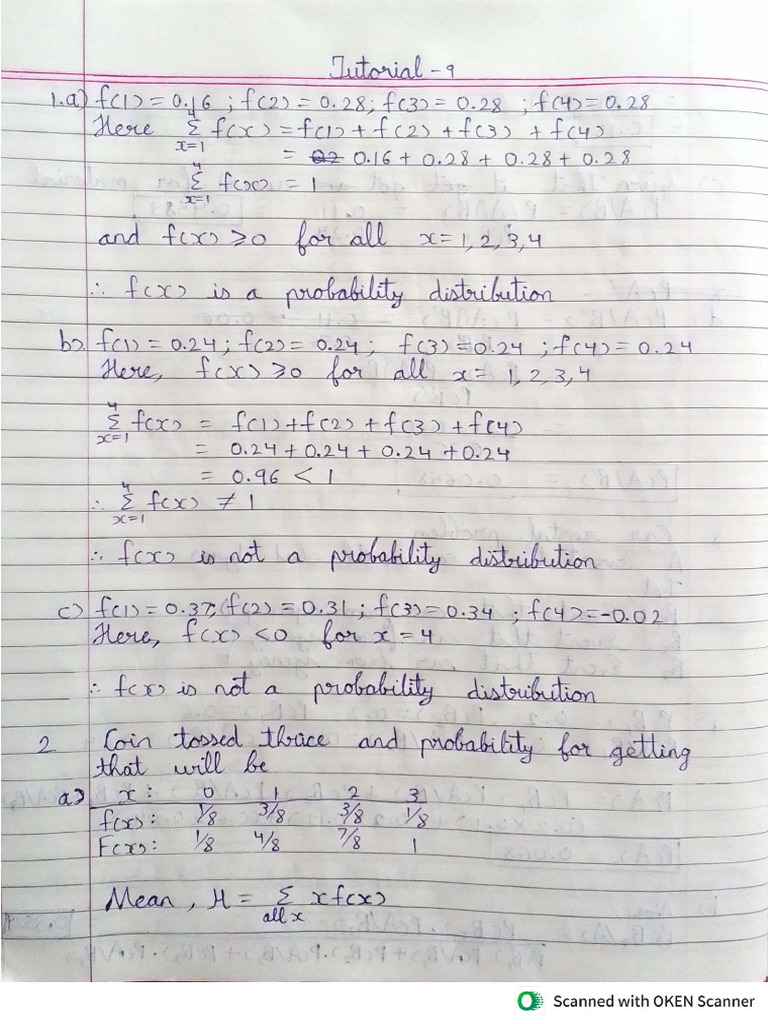 Tutorial - 9
1.a) f(1) = 0.16 ; f(2) = 0.28 ; f(3) = 0.28 ; f(4) = 0.28
Here 4Σx=1 f(x) = f(1) + f(2) + f(3) + f(4)
= 0.16 + 0.28 + 0.28 + 0.28
4Σx=1 f(x) = 1
and f(x) ≥ 0 for all x = 1, 2, 3, 4
∴ f(x) is a probability distribution
b) f(1) = 0.24 ; f(2) = 0.24 ; f(3) = 0.24 ; f(4) = 0.24
Here, f(x) ≥ 0 for all x = 1, 2, 3, 4
4Σx=1 f(x) = f(1) + f(2) + f(3) + f(4)
= 0.24 + 0.24 + 0.24 + 0.24
= 0.96 < 1
∴ 4Σx=1 f(x) ≠ 1
∴ f(x) is not a probability distribution
c) f(1) = 0.37; f(2) = 0.31 ; f(3) = 0.34 ; f(4) = -0.02
Here, f(x) < 0 for x = 4
∴ f(x) is not a probability distribution
2 Coin tossed thrice and probability for getting
that will be
a) x : 0 1 2 3
f(x) : 1/8 3/8 3/8 1/8
F(x) : 1/8 4/8 7/8 1
Mean , μ = Σall x x f(x)
Scanned with OKEN Scanner